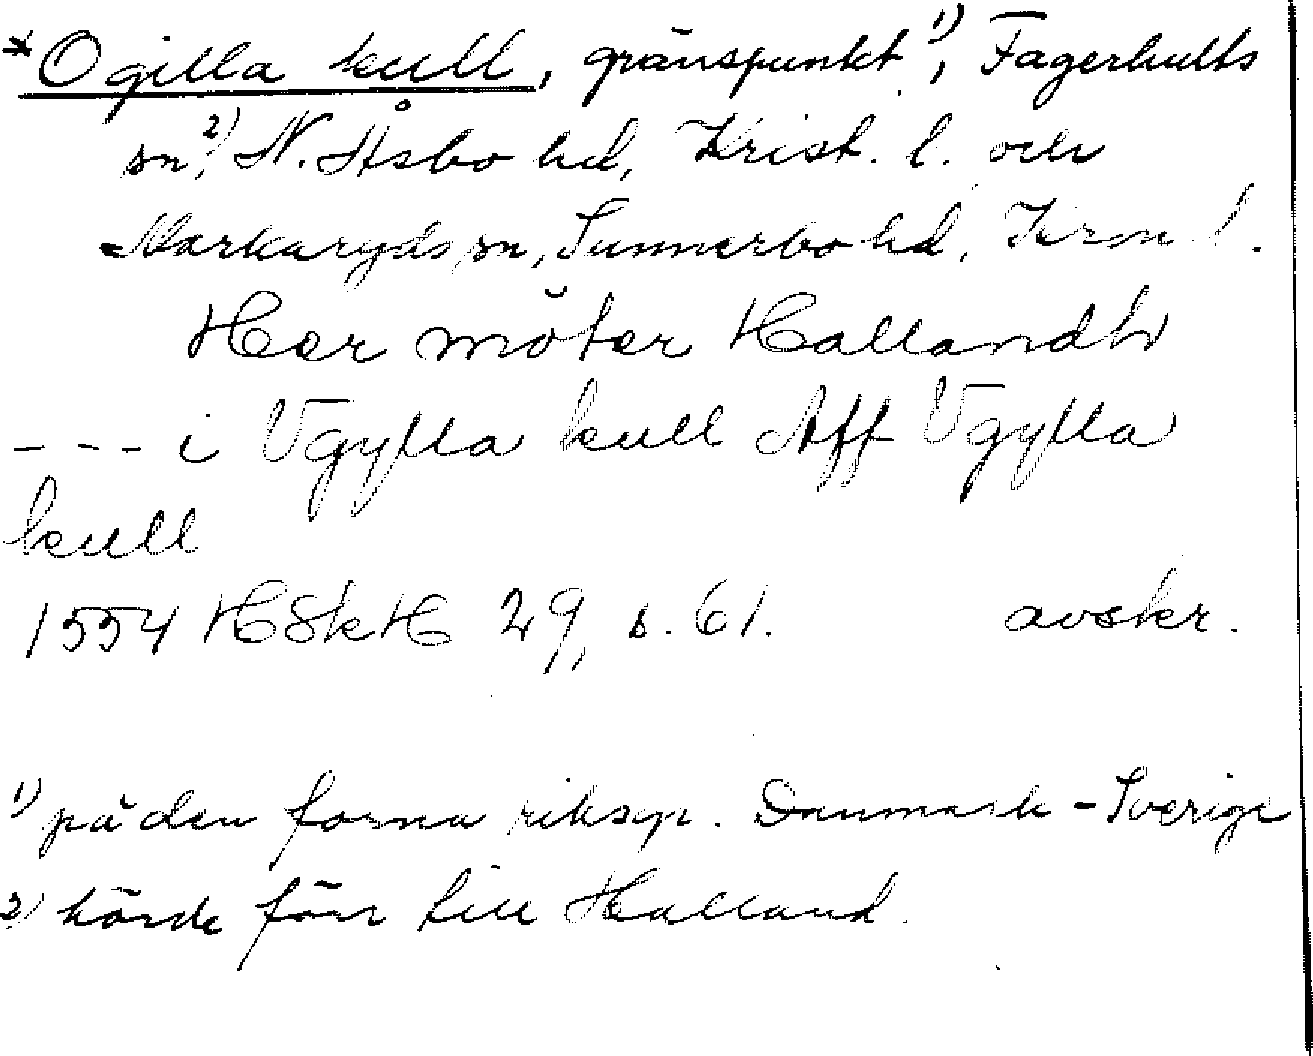 *Ogilla kull, gränspunkt 1), Fagerhults
sn, 2) N. Åsbo hd, Krist. l. och
Markaryds sn, Sunnerbo hd, Kron. l.
Her möter Hallandh
--- i Vgylla kull Aff Vgylla
kull
1554 HSkH 29, s. 61. avskr.
1) på den forna riksgr. Danmark - Sverige
2) hörde förr till Halland.